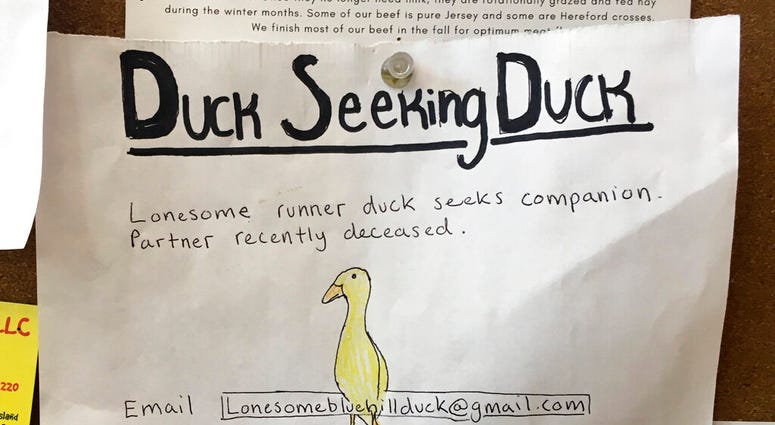 they are rotationally grazed and fed hay
during the winter months. Some of our beef is pure Jersey and some are Hereford crosses.
We finish most of our beef in the fall for optimum
Duck Seeking Duck
Lonesome runner duck seeks companion.
Partner recently deceased.
LLC
220
sland
Email Lonesomebluehillduck@gmail.com